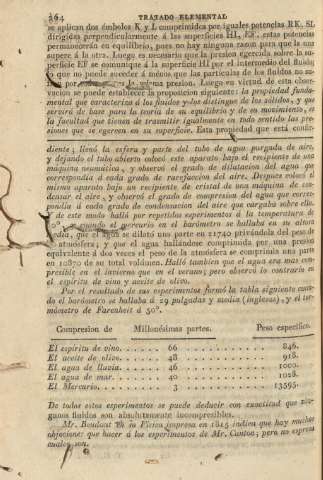 264 TRATADO ELEMENTAL
se aplican dos émbolos K y L comprimidos por iguales potencias RK, SL
dirigidas perpendicularmente á las superficies HI, EF, estas potencias
permanecerán en equilibrio, pues no hay ninguna razon para que la una
supere á la otra. Luego es necesario que la presion egercida sobre la su-
perficie EF se comunique á la superficie HI por el intermedio del fluido;
lo que no puede suceder á ménos que las partículas de los fluidos no su-
fran por la misma presion. Luego en virtud de esta obser-
vacion se puede establecer la proposicion siguiente: la propiedad funda-
mental que caracteriza á los fluidos y los distingue de los sólidos, y que
servirá de base para la teoría de su equilibrio y de su movimiento, es
la facultad que tienen de trasmitir igualmente en todo sentido las pre-
siones que se egercen en su superficie. Esta propiedad que está confir-
diente; llenó la esfera y parte del tubo de agua purgada de aire,
y dejando el tubo abierto colocó este aparato bajo el recipiente de una
máquina neumática, y observó el grado de dilatacion del agua que
correspondia á cada grado de rarefaccion del aire. Despues colocó el
mismo aparato bajo un recipiente de cristal de una máquina de con-
densar el aire, y observó el grado de compresion del agua que corres-
pondia á cada grado de condensacion del aire que cargaba sobre ella.
De este modo halló por repetidos esperimentos á la temperatura de
cuando el mercurio en el barómetro se hallaba en su altura
media, que el agua se dilató una parte en 21740 privándola del peso de
la atmósfera; y que el agua hallándose comprimida por una presion
equivalente á dos veces el peso de la atmósfera se comprimia una parte
en 10870 de su total volúmen. Halló tambien que el agua era mas com-
presible en el invierno que en el verano; pero observó lo contrario en
el espíritu de vino y aceite de olivo.
Por el resultado de sus esperimentos formó la tabla siguiente cuan-
do el barómetro se hallaba á 29 pulgadas y media (inglesas), y el ter-
mómetro de Farenheit á 50°.
Compresion de Millonésimas partes. Peso especifico.
El espíritu de vino. . . . . . 66 . . . . . . . . . . . 846.
El aceite de olivo. . . . . . . 48 . . . . . . . . . . . 918.
El agua de lluvia. . . . . . . 46 . . . . . . . . . . . 1000.
El agua de mar. . . . . . . . 40 . . . . . . . . . . . 1028.
El Mercurio. . . . . . . . . . 3 . . . . . . . . . . . 13595.
De todos estos esperimentos se puede deducir con exactitud que nin-
gunos fluidos son absolutamente incompresibles.
Mr. Beudant en su Física impresa en 1815 indica que hay muchas
objeciones que hacer á los esperimentos de Mr. Canton; pero no espresa
cuales son.